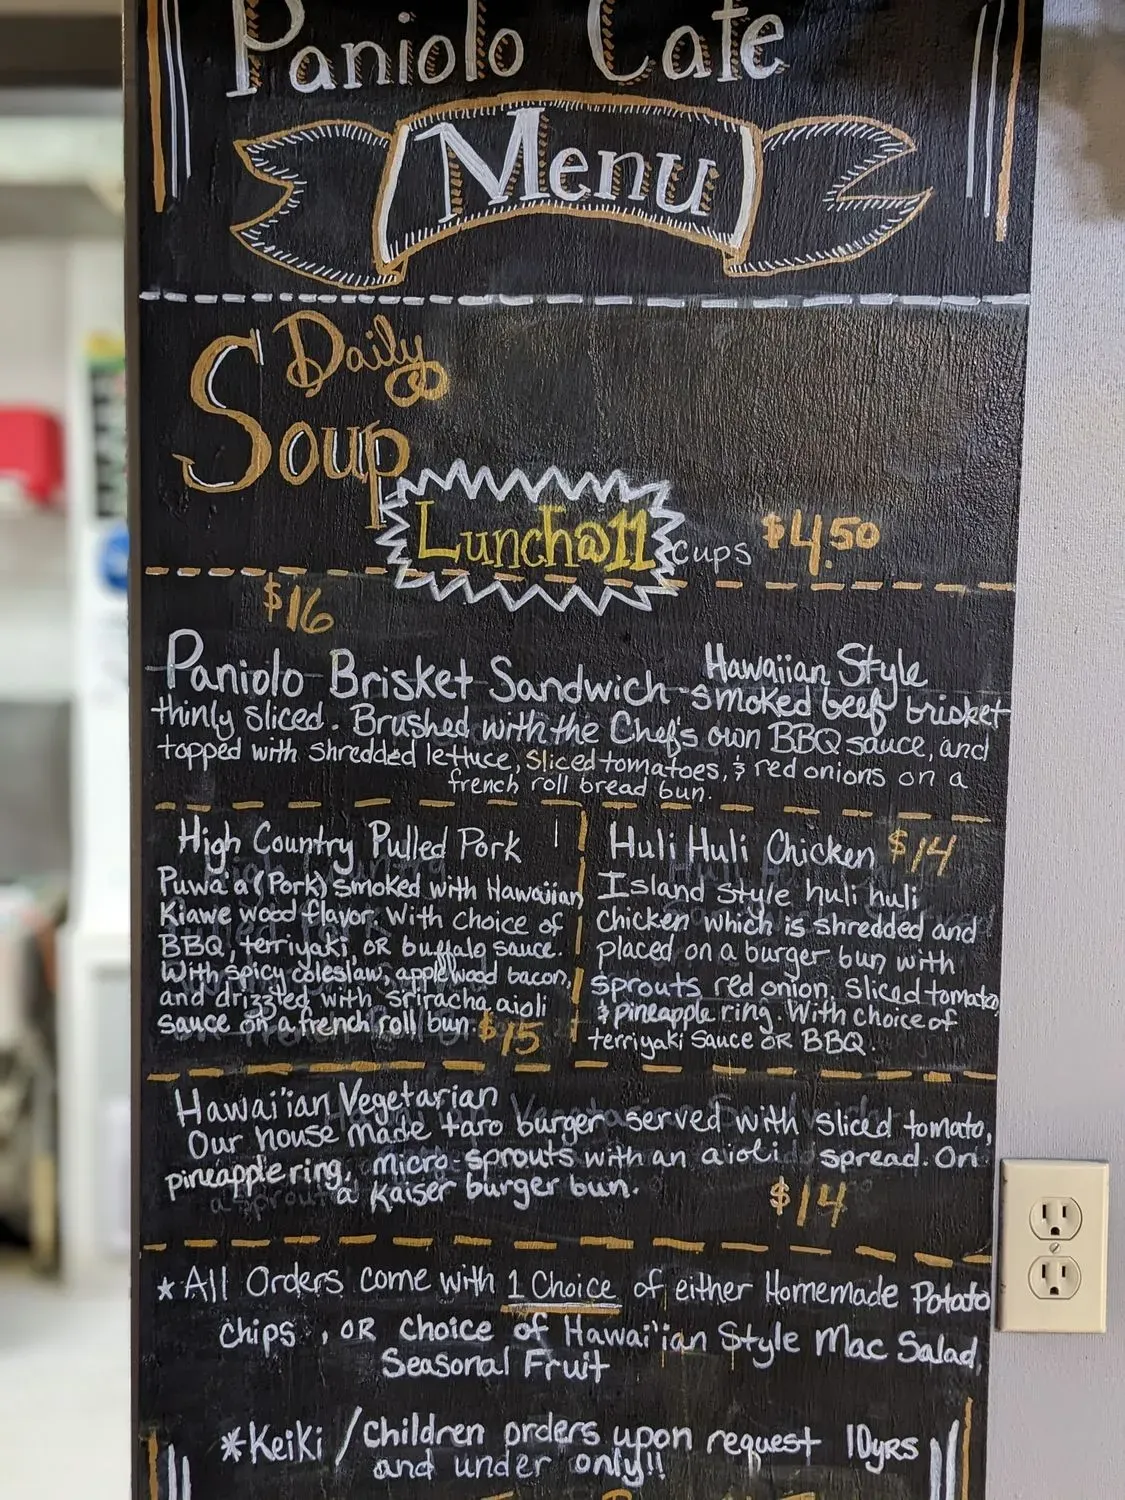 Paniolo Cafe
Menu
Daily
Soup
Lunch@11
cups $4.50
$16
Paniolo Brisket Sandwich - Hawaiian Style
smoked beef brisket
thinly sliced. Brushed with the Chef's own BBQ sauce, and
topped with shredded lettuce, sliced tomatoes, & red onions on a
french roll bread bun.
High Country Pulled Pork
Puwa'a (Pork) smoked with Hawaiian
Kiawe wood flavor. With choice of
BBQ, terriyaki, OR buffalo sauce.
With spicy coleslaw, applewood bacon,
and drizzled with sriracha aioli
sauce on a french roll bun. $15
Huli Huli Chicken $14
Island style huli huli
chicken which is shredded and
placed on a burger bun with
sprouts red onion, sliced tomato
& pineapple ring. With choice of
terriyaki sauce OR BBQ.
Hawai'ian Vegetarian
Our house made taro burger served with sliced tomato,
pineapple ring, micro-sprouts with an aioli spread. On
a kaiser burger bun.
$14
*All Orders come with 1 Choice of either Homemade Potato
chips, OR choice of Hawai'ian Style Mac Salad,
Seasonal Fruit
*Keiki / Children orders upon request 10yrs
and under only!!